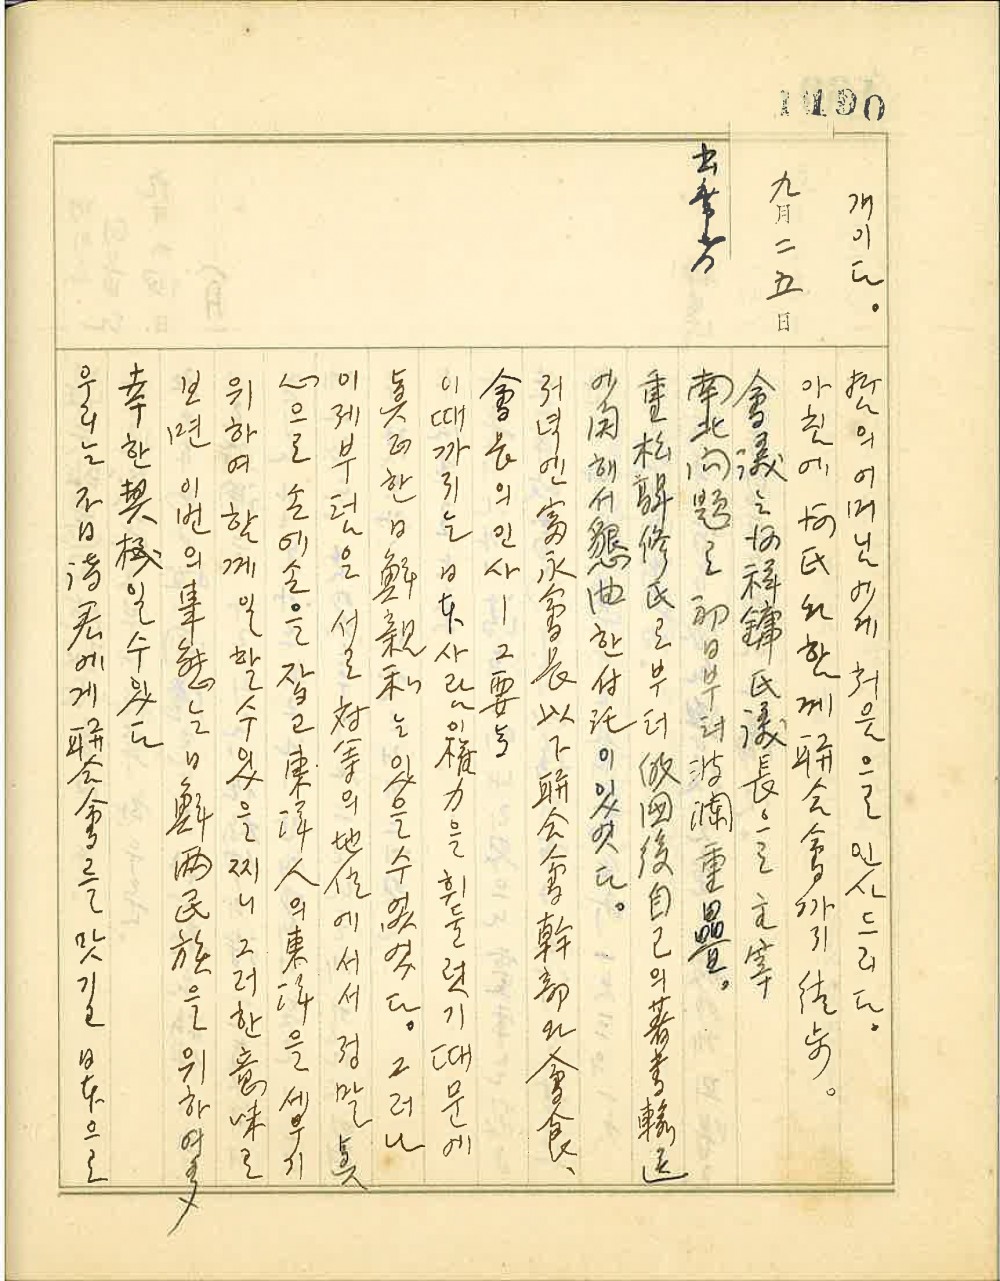 1090
개이다。
九月二五日
哲의어머님에게 처음으로 인사드리다。
아침에 何氏와함께 聯合會까지 徒步。
會議는 何祥鏞氏議長으로 主宰
南北问題로 初日부터 波瀾重疊。
重松髜修氏로부터 倣國後自己의著書輸送
에関해서 懇曲한付託이있엇다。
저녁엔 富永會長以下 聯合會幹部와 會食、
會長의인사ㅣ그要旨
이때까지는 日本사람이權力을 휘둘렀기때문에
眞正한日鮮親和는있을수없엇다。 그러나
이제부텀은 서로 対等의地位에서서 정말 眞
心으로 손에손을 잡고 東洋人의東洋을 세우기
위하여 함께 일할수있을찌니 그러한意味로
보면 이번의事態는 日鮮两民族을 위하여多
幸한契機일수있다
우리는 今日諸君에게 聯合會를 맛기고 日本으로